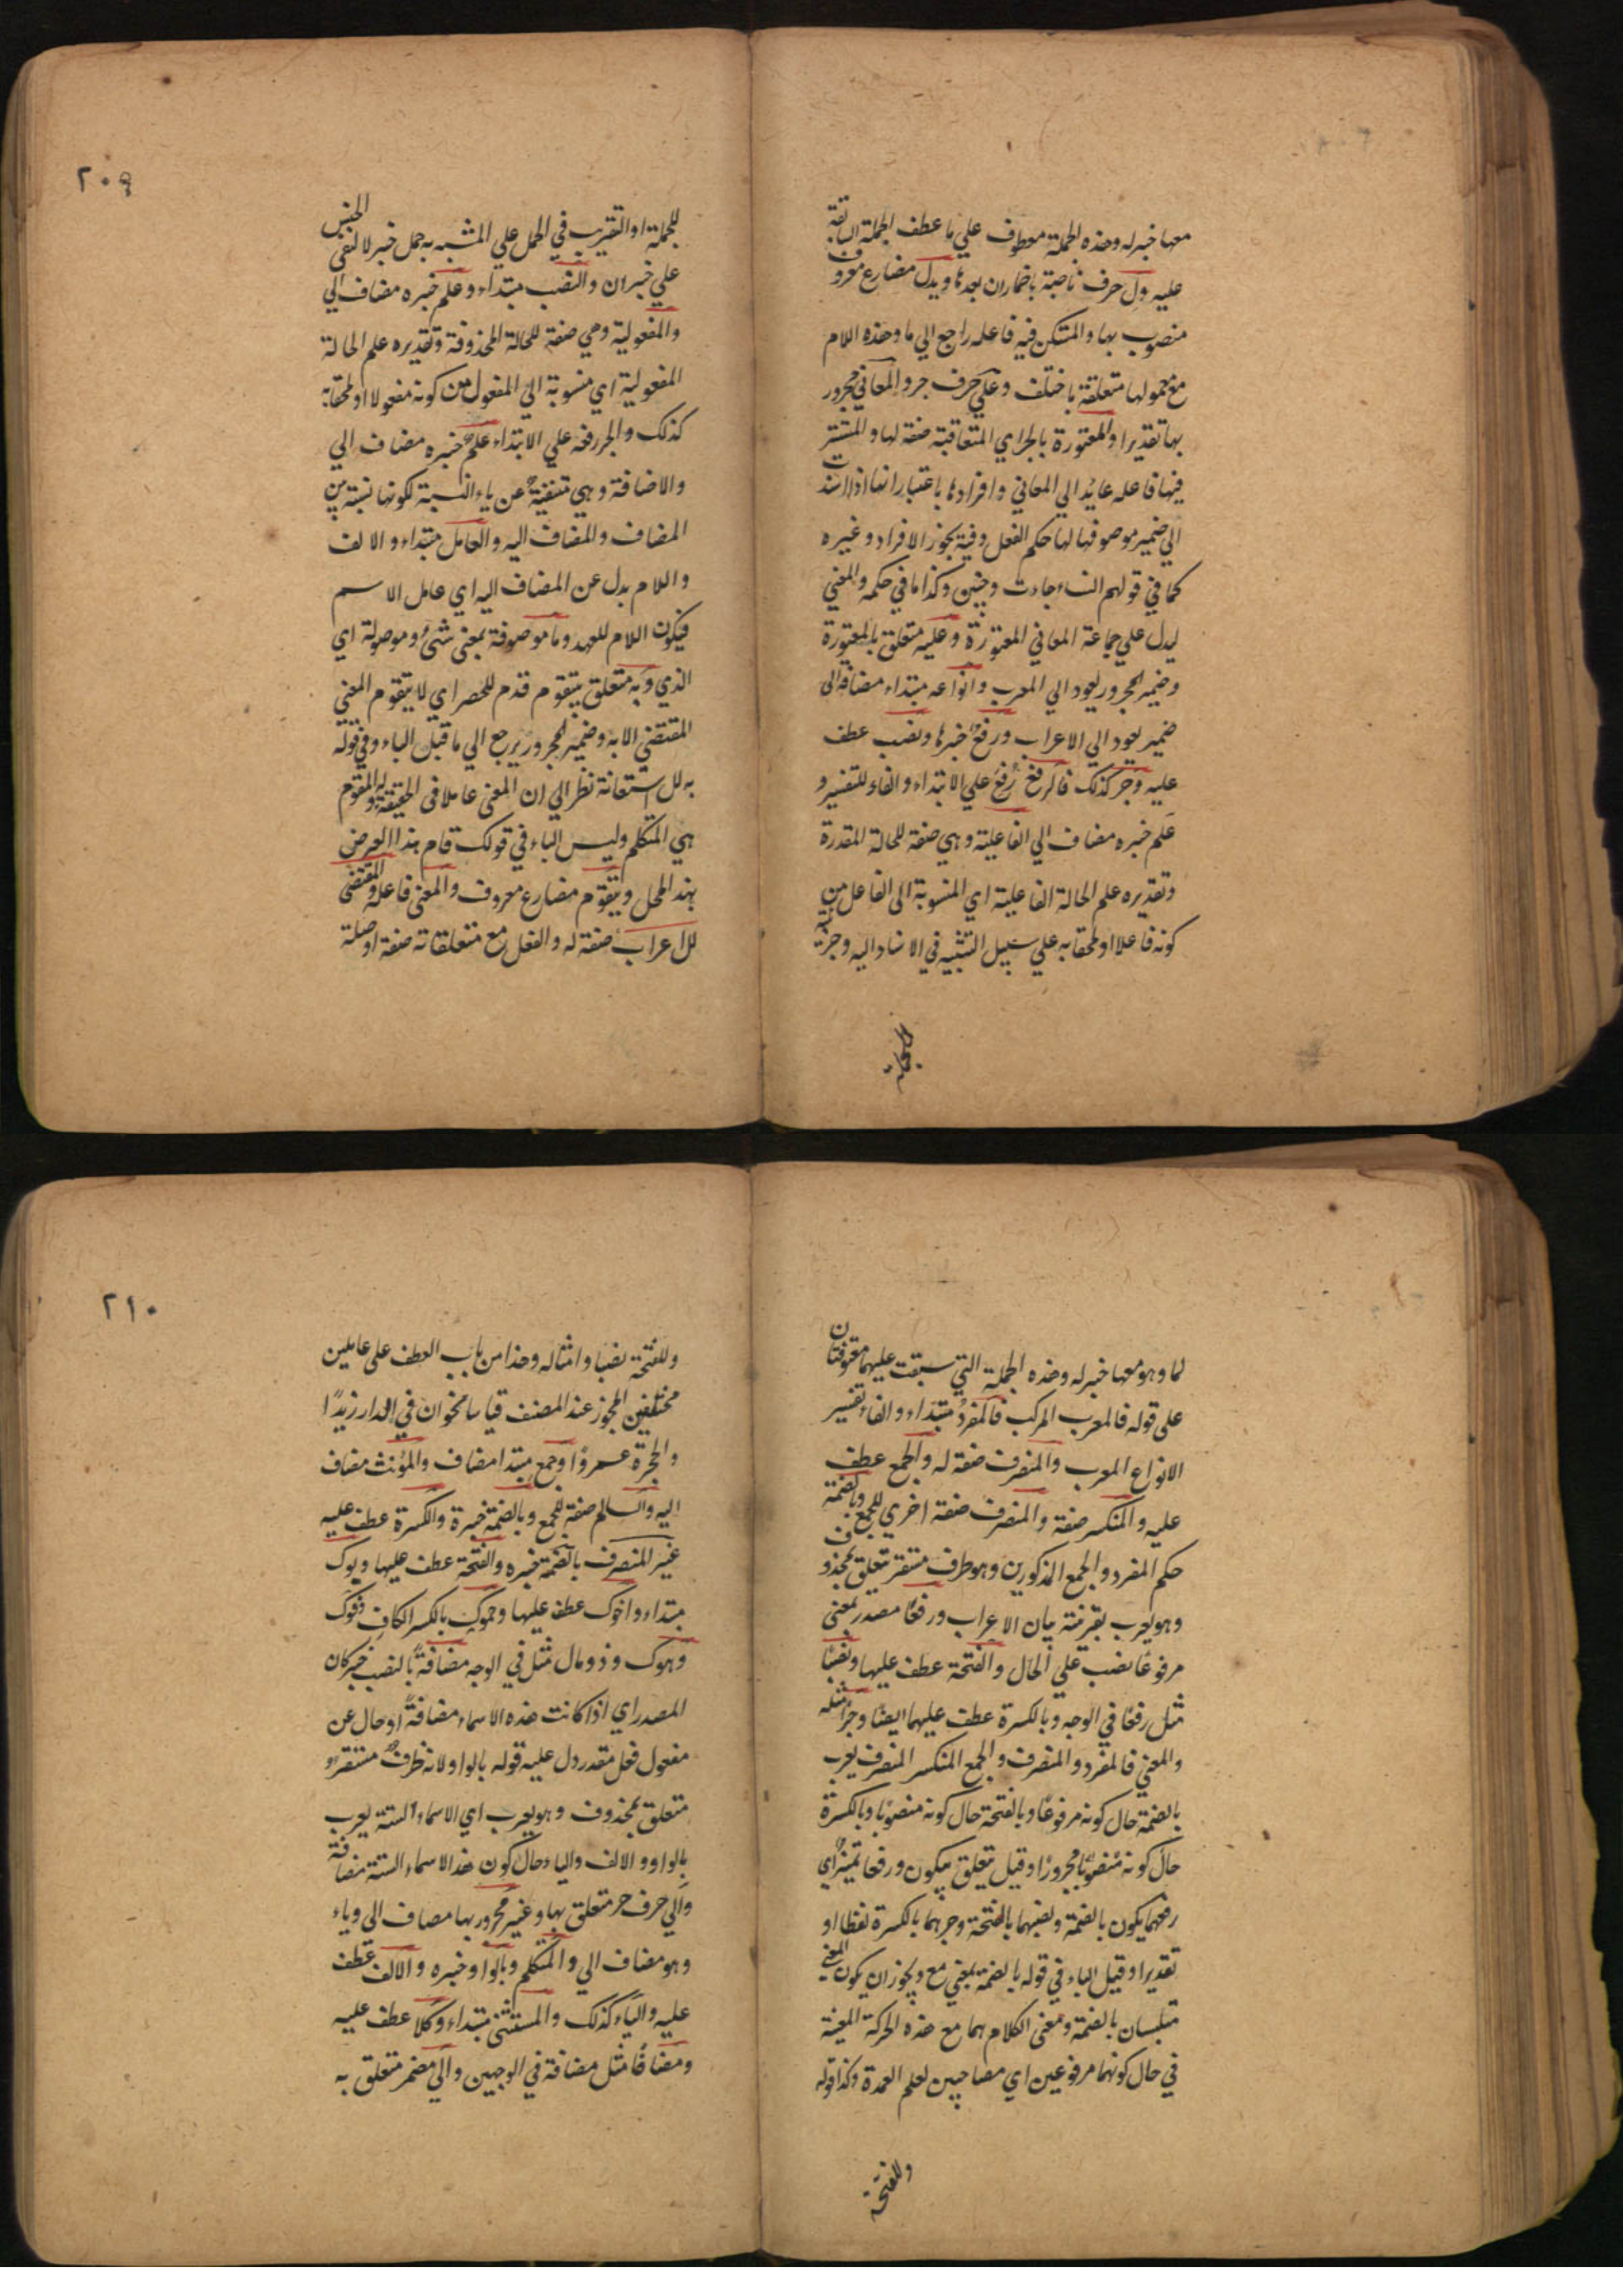 معها خبر له وهذه الجملة معطوف علي ما عطف الجملة السابقة
عليه ول حرف ناصبة باضمار ان بعدها ويدل مضارع معروف
منصوب بها والمستكن فيه فاعله راجع الي ما وهذه اللام
مع معمولها متعلقة باختلف وعلي حرف جر والمعاني مجرور
بها تقديرا والمعتورة بالجر اي المتعاقبة صفة لها والمستتر
فيها فاعله عايد الي المعاني وافرادها باعتبار انها اذا اسندت
الي ضمير موصوفها لها حكم الفعل وفيه يجوز الافراد وغيره
كما في قولهم النساء جاءت وجئن وكذا ما في حكمه والمعني
ليدل علي جماعة المعاني المعتورة وعليه متعلق بالمعتورة
وضمير المجرور يعود الي المعرب وانواعه مبتداء مضافة الى
ضمير يعود الي الاعراب ورفع خبرها ونصب عطف
عليه وجر كذلك فالرفع رفع علي الابتداء والفاء للتفسير و
علم خبره مضاف الي الفاعلية وهي صفة للحالة المقدرة
وتقديره علم الحالة الفاعلية اي المنسوبة الى الفاعل من
كونه فاعلا او ملحقا به علي سبيل التشبيه في الاسناد اليه وجزئية
للجملة
٢٠٩
للجملة او التقريب في الحمل علي المشبه به حمل خبر لا لنفى الجنس
علي خبر ان والنصب مبتداء وعلم خبره مضاف الي
والمفعولية وهي صفة للحالة المحذوفة وتقديره علم الحالة
المفعولية اي منسوبة الي المفعول من كونه مفعولا او ملحقا به
كذلك والجر رفعه علي الابتداء علم خبره مضاف الي
والاضافة وهي مستغنية عن ياء النسبة لكونها نسبة بين
المضاف والمضاف اليه والعامل مبتداء والالف
واللام بدل عن المضاف اليه اي عامل الاسم
فيكون اللام للعهد وما موصوفة بمعنى شئ وموصولة اي
الذي وبه متعلق يتقوم قدم للحصر اي لا يتقوم المعني
المقتضي الا به وضمير المجرور يرجع الي ما قبل الباء وفي قوله
به للاستعانة نظر الي ان المعني عاملا في الحقيقة والمقوم
هي المتكلم وليس الباء في قولك قام هذا العرض
بهذا المحل ويتقوم مضارع معروف والمعني فاعله والمقتضى
للاعراب صفة له والفعل مع متعلقاته صفة او صلة
لما وهو معها خبر له وهذه الجملة التي سبقت عليهما معطوفتان
على قوله فالمعرب المركب فالمفرد مبتداء والفاء تفسير
الانواع المعرب والمنصرف صفة له والجمع عطف
عليه والمنكسر صفة والمنصرف صفة اخري للجمع وبالضمة
حكم المفرد والجمع المذكورين وهو ظرف مستقر متعلق بمحذوف
وهو يعرب بقرينة بيان الاعراب ورفعا مصدر بمعنى
مرفوعا نصب علي الحال والفتحة عطف عليها ونصبا
مثل رفعا في الوجه وبالكسرة عطف عليهما ايضا وجرا مثله
والمعني فالمفرد والمنصرف والجمع المنكسر المنصرف يعرب
بالضمة حال كونه مرفوعا وبالفتحة حال كونه منصوبا وبالكسرة
حال كونه منصوبا مجرورا وقيل متعلق بيكون ورفعا تميز اي
رفعهما يكون بالضمة ونصبهما بالفتحة وجرهما بالكسرة لفظا او
تقديرا وقيل الباء في قوله بالضمة بمعني مع ويجوز ان يكون المعني
متلبسان بالضمة ومعنى الكلام بهما مع هذه الحركة المعينة
في حال كونهما مرفوعين اي مصاحبين لعلم العمدة وكذا قوله
وللفتحة
٢١٠
وللفتحة نصبا وامثاله وهذا من باب العطف على عاملين
مختلفين المجوز عند المصنف قياسا نحو ان في الدار زيدًا
والحجرة عمروًا وجمع مبتدا مضاف والمؤنث مضاف
اليه والسالم صفة للجمع وبالضمة خبره والكسرة عطف عليه
غير المنصرف بالضمة خبره والفتحة عطف عليها وبوك
مبتداء واخوك عطف عليها وحموك بالكسر الكاف وفوك
وهوك وذو مال مثل في الوجه مضافة بالنصب خبر كان
المصدر اي اذا كانت هذه الاسماء مضافة او حال عن
مفعول فعل مقدر دل عليه قوله بالواو لانه ظرف مستقر و
متعلق بمحذوف وهو يعرب اي الاسماء الستة يعرب
بالواو والالف والياء حال كون هذا الاسماء الستة مضافة
والي حرف جر متعلق بها وغير مجرور بها مضاف الي وياء
وهو مضاف الي والمتكلم وبالواو خبره والالف عطف
عليه والياء كذلك والمستثنى مبتداء وكلا عطف عليه
ومضافًا مثل مضافة في الوجهين والي مضمر متعلق به